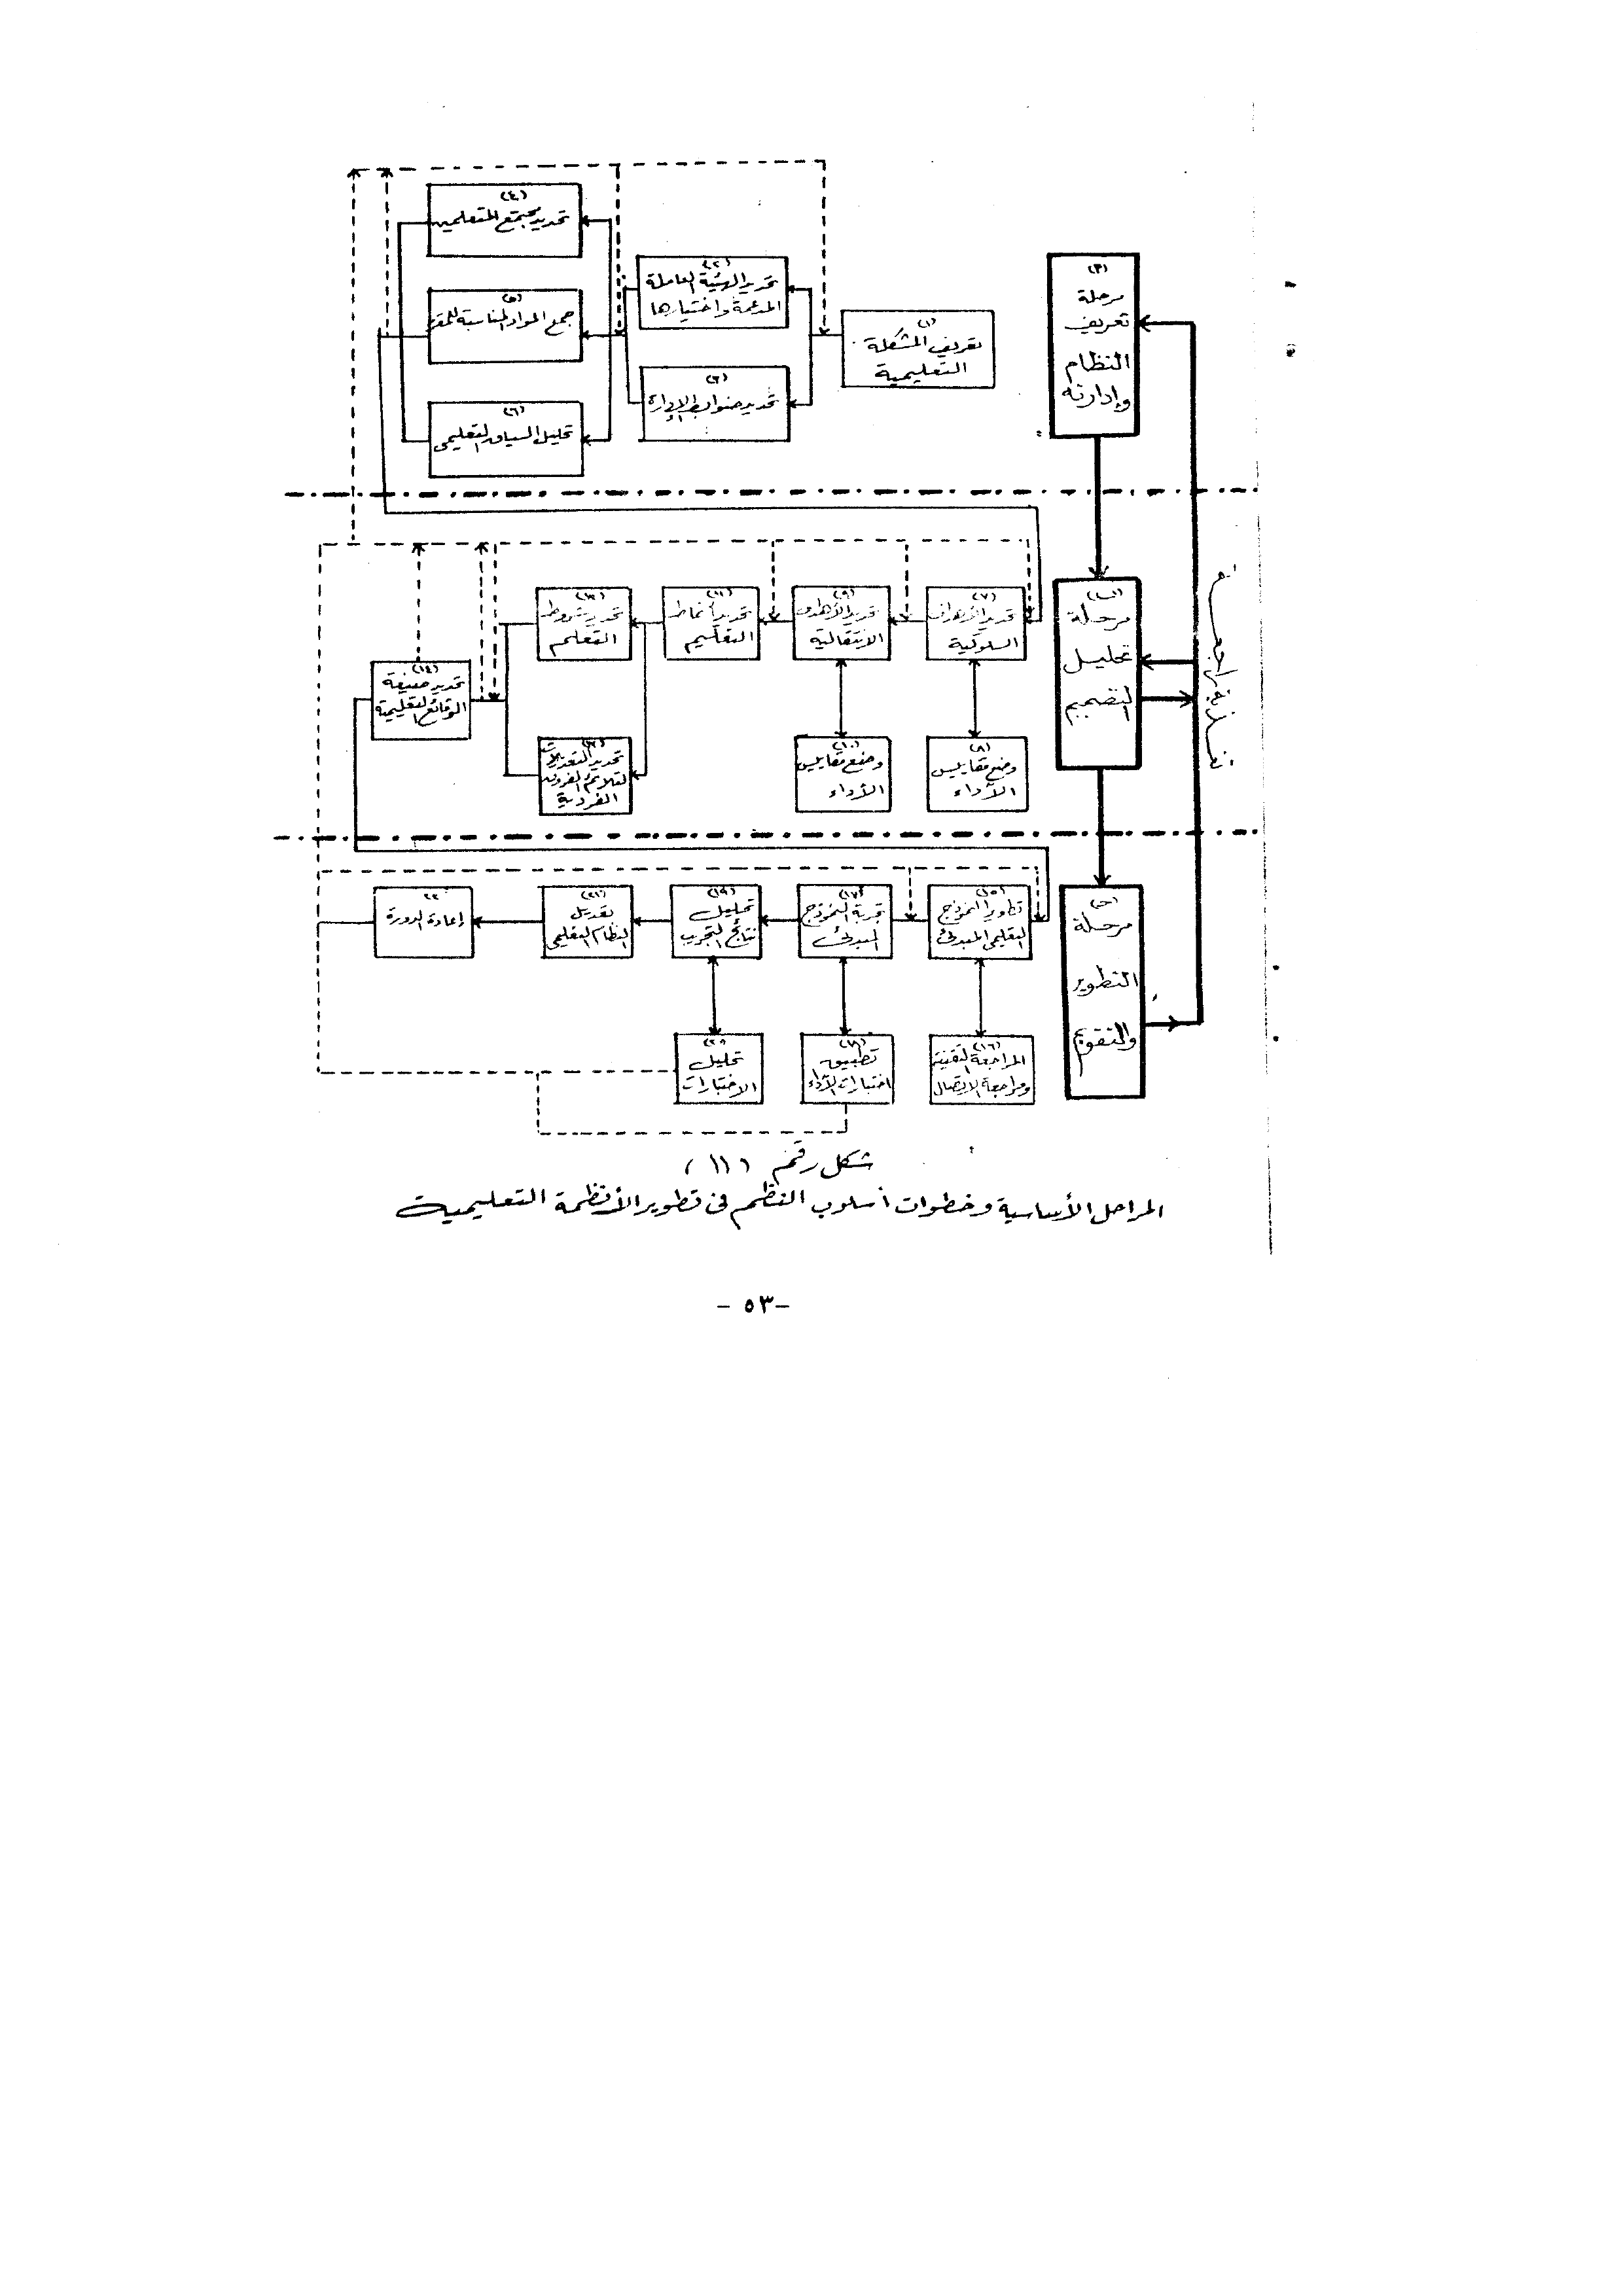 (١)
مرحلة
تعريف
النظام
وإدارته
(١)
تعريف المشكلة
التعليمية
(٢)
تحديد الهيئة العاملة
المدعمة واختيارها
(٣)
تحديد ضوابط الإدارة
(٤)
تحديد مجتمع المتعلمين
(٥)
جمع المواد المناسبة للمقرر
(٦)
تحليل السياق التعليمي
تغذية راجعة
(ب)
مرحلة
تحليل
التصميم
(٧)
تحديد الأهداف
السلوكية
(٨)
وضع مقاييس
الأداء
(٩)
تحديد الأهداف
الانتقالية
(١٠)
وضع مقاييس
الأداء
(١١)
تحديد أنماط
التعليم
(١٢)
تحديد شروط
التعلم
(١٣)
تحديد التعديلات
لتلائم الفروق
الفردية
(١٤)
تحديد صيغة
الوقائع التعليمية
(جـ)
مرحلة
التطوير
والتقويم
(١٥)
تطوير النموذج
التعليمي المبدئي
(١٦)
المراجعة التقنية
ومراجعة الاتصال
(١٧)
تجربة النموذج
المبدئي
(١٨)
تطبيق
اختبارات الأداء
(١٩)
تحليل
نتائج التجريب
٢٠
تحليل
الاختبارات
(٢١)
تعديل
النظام التعليمي
٢٢
إعادة الدورة
شكل رقم (١١)
المراحل الأساسية وخطوات أسلوب النظم في تطوير الأنظمة التعليمية
- ٥٣ -